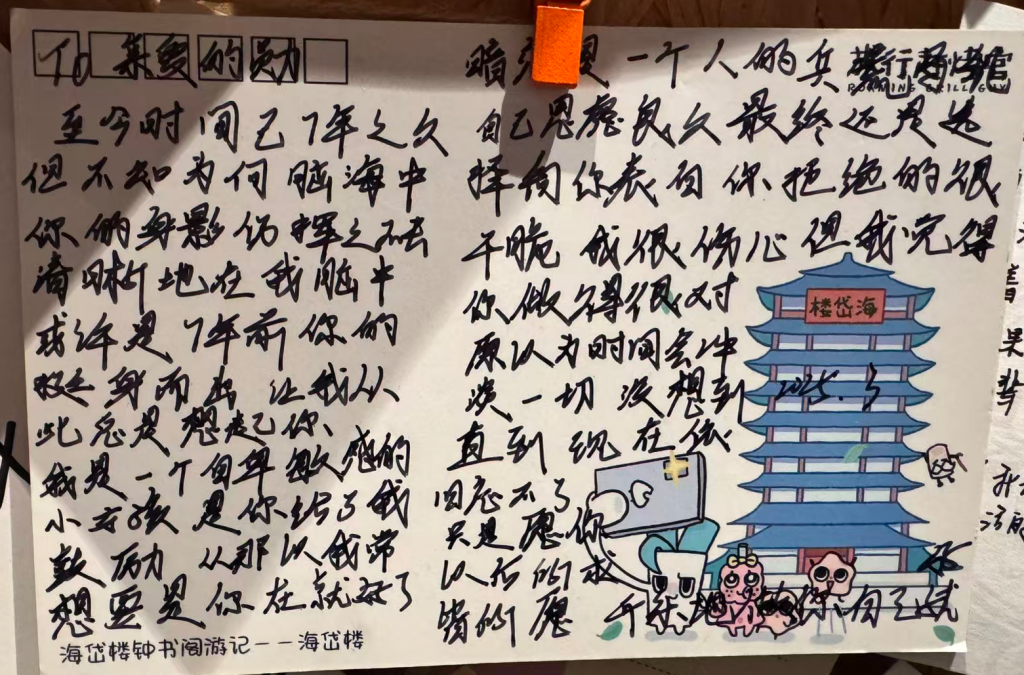 To 亲爱的勋
至今时间已7年之久
但不知为何脑海中
你的身影仍挥之不去
清晰地在我脑中
或许是7年前你的
挺身而出 让我从
此总是想起你
我是一个自卑敏感的
小女孩 是你给了我
鼓励 从那以后我常
想要是你在就好了
海岱楼钟书阁游记——海岱楼
暗恋是一个人的兵
自己思虑良久 最终还是选
择向你表白 你拒绝的很
干脆 我很伤心 但我觉得
你做得很对
原以为时间会冲
淡一切 没想到
直到现在依
旧忘不了
只是愿你
以后所求
皆所愿
2025.3
海岱楼